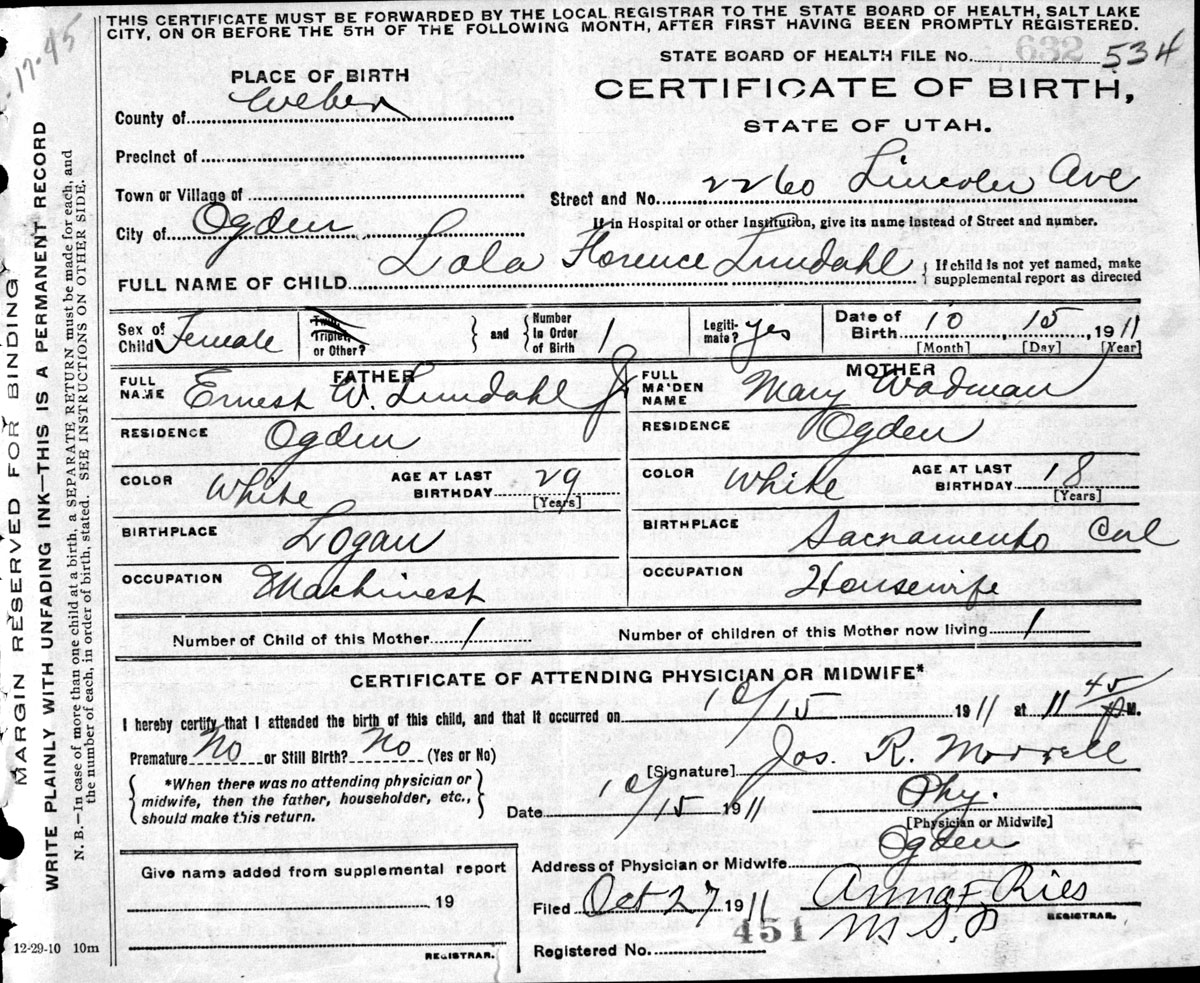 THIS CERTIFICATE MUST BE FORWARDED BY THE LOCAL REGISTRAR TO THE STATE BOARD OF HEALTH, SALT LAKE
CITY, ON OR BEFORE THE 5TH OF THE FOLLOWING MONTH, AFTER FIRST HAVING BEEN PROMPTLY REGISTERED.
17-45
STATE BOARD OF HEALTH FILE No. 632 534
PLACE OF BIRTH
CERTIFICATE OF BIRTH,
STATE OF UTAH.
County of Weber
Precinct of
Town or Village of
Street and No. 2260 Lincoln Ave
If in Hospital or other Institution, give its name instead of Street and number.
City of Ogden
FULL NAME OF CHILD Lola Florence Lundahl { If child is not yet named, make
supplemental report as directed
Sex of
Child Female
Twin,
Triplet,
or Other?
} and {
Number
In Order
of Birth 1
Legiti-
mate? yes
Date of
Birth 10 , 15 , 1911
[Month] [Day] [Year]
FATHER
FULL
NAME Ernest W. Lundahl Jr
RESIDENCE Ogden
COLOR White
AGE AT LAST
BIRTHDAY 29
[Years]
BIRTHPLACE Logan
OCCUPATION Machinest
MOTHER
FULL
MAIDEN
NAME Mary Wadman
RESIDENCE Ogden
COLOR White
AGE AT LAST
BIRTHDAY 18
[Years]
BIRTHPLACE Sacramento Cal
OCCUPATION Housewife
Number of Child of this Mother 1
Number of children of this Mother now living 1
CERTIFICATE OF ATTENDING PHYSICIAN OR MIDWIFE*
I hereby certify that I attended the birth of this child, and that it occurred on 10/15 1911 at 11 45 P M.
Premature No or Still Birth? No (Yes or No)
{ *When there was no attending physician or
midwife, then the father, householder, etc.,
should make this return. }
[Signature] Jos. R. Morrell
Date 10/15 1911
Phy.
[Physician or Midwife]
Address of Physician or Midwife Ogden
Give name added from supplemental report
19
REGISTRAR.
Filed Oct 27 1911
Anna F. Ries
REGISTRAR.
451
Registered No.
12-29-10 10m
MARGIN RESERVED FOR BINDING
WRITE PLAINLY WITH UNFADING INK—THIS IS A PERMANENT RECORD
N. B.—In case of more than one child at a birth, a SEPARATE RETURN must be made for each, and
the number of each, in order of birth, stated. SEE INSTRUCTIONS ON OTHER SIDE.